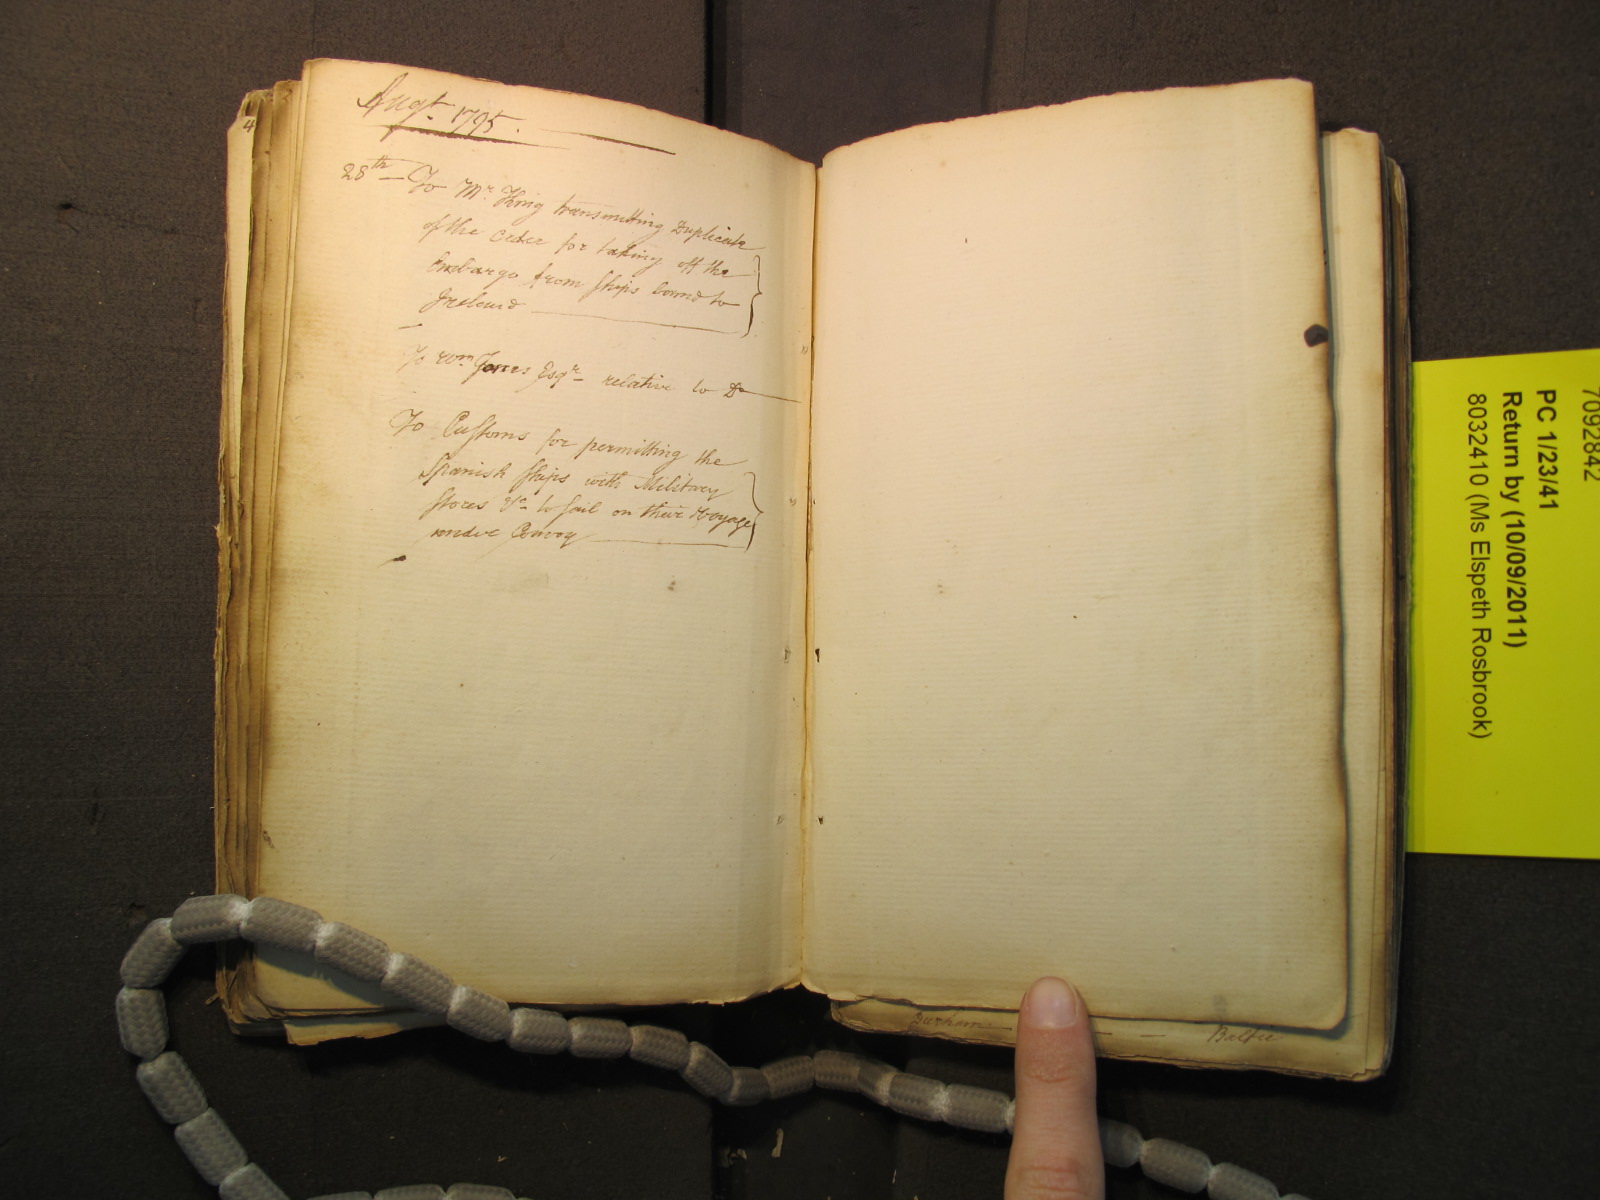 Augt. 1795.
28th — To Mr. King transmitting Duplicate
of the Order for taking off the
Embargo from Ships bound to
Ireland
To Wm Jones Esqr. relative to Do
To Customs for permitting the
Spanish Ships with Military
Stores &c. to sail on their Voyage
under Convoy
4
Durham — Balfe
7092842
PC 1/23/41
Return by (10/09/2011)
8032410 (Ms Elspeth Rosbrook)